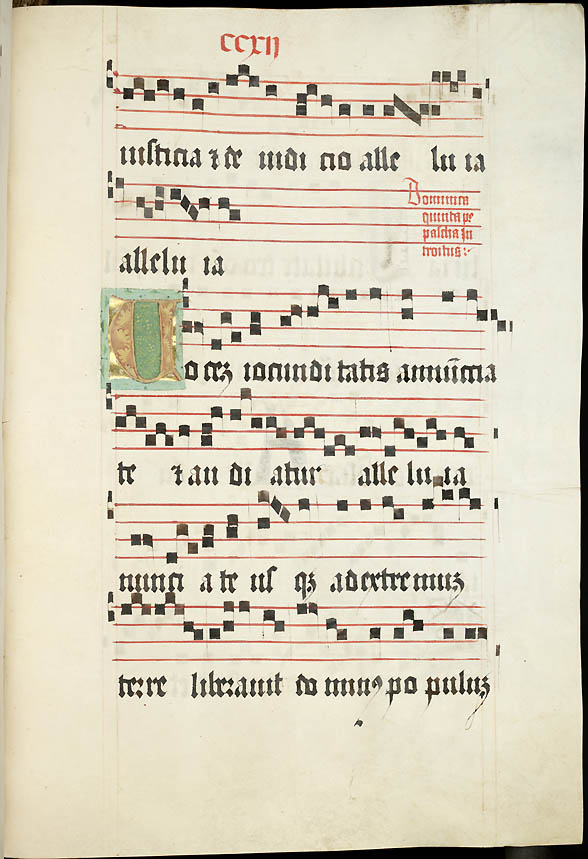 ccxij
iusticia ⁊ de iudi cio alle lu ia
Dominica
quinta pe
pascha in
troitus :
allelu ia
Uo ceʒ iocundi tatis annūccia
te ⁊ au di atur alle lu ia
nunci a te us qʒ ad extre muʒ
terre liberauit do minꝰ po puluʒ